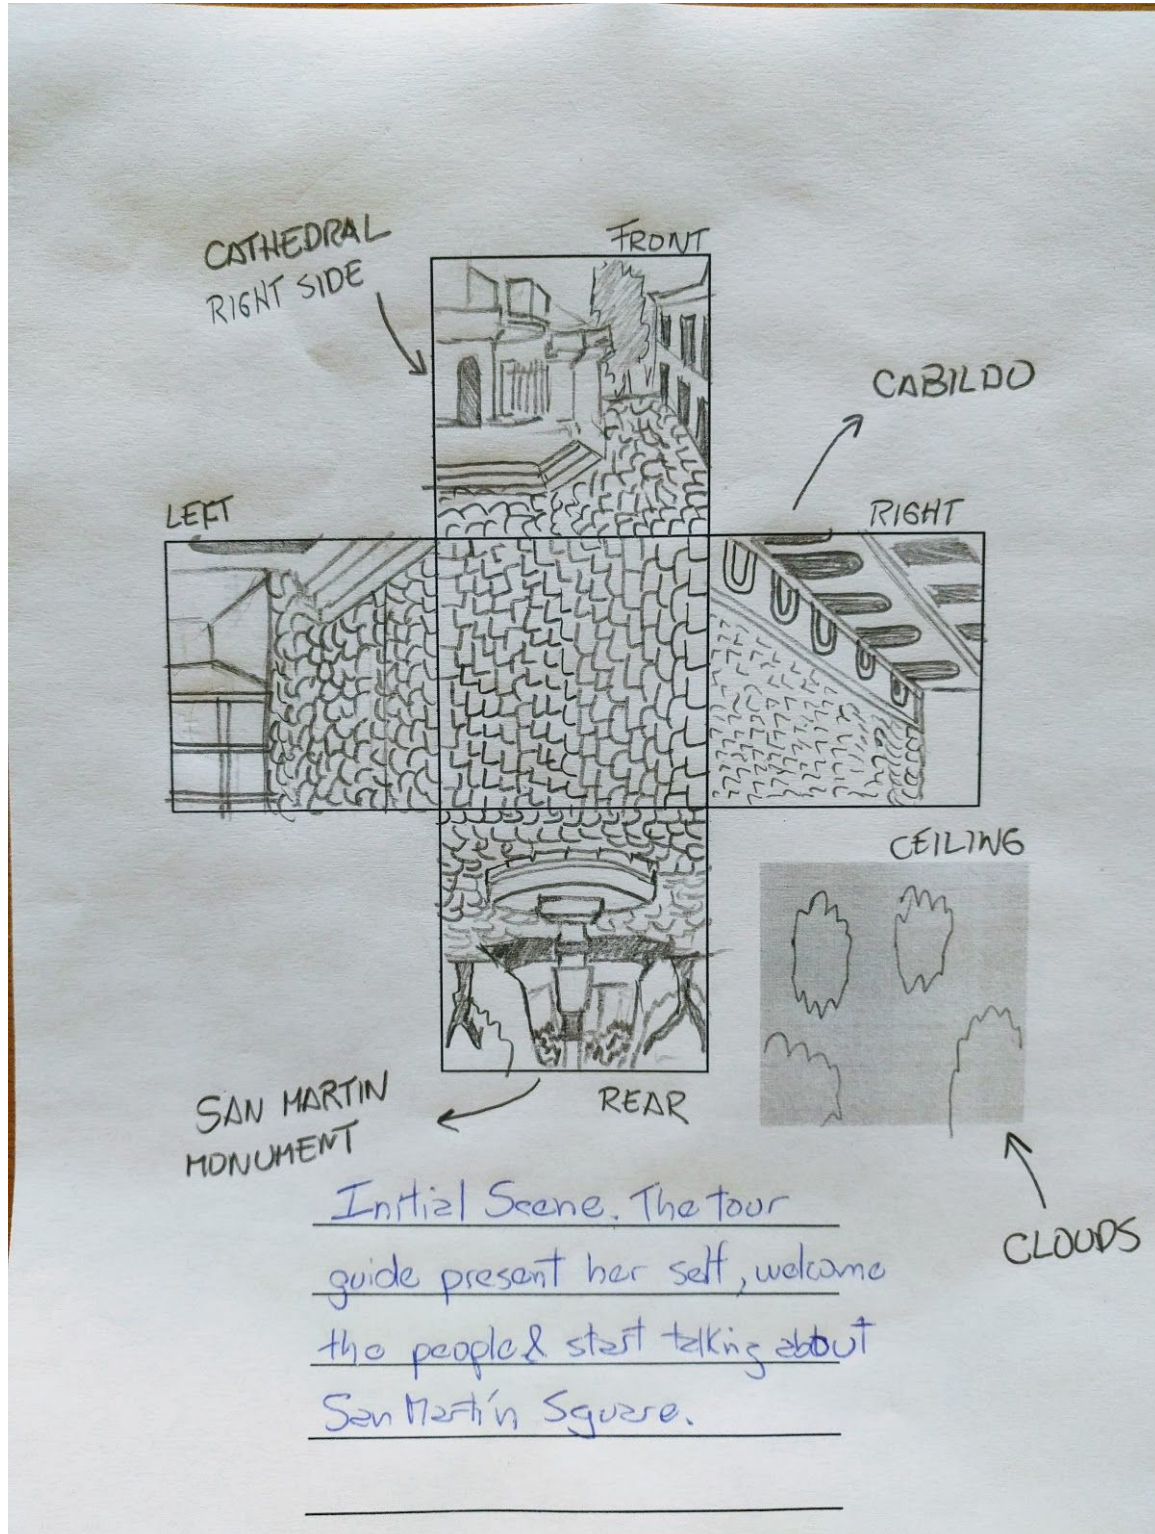 FRONT
CATHEDRAL
RIGHT SIDE
CABILDO
LEFT
RIGHT
CEILING
SAN MARTIN
MONUMENT
REAR
CLOUDS
Initial Scene. The tour
guide present her self, welcome
the people & start talking about
San Martín Square.